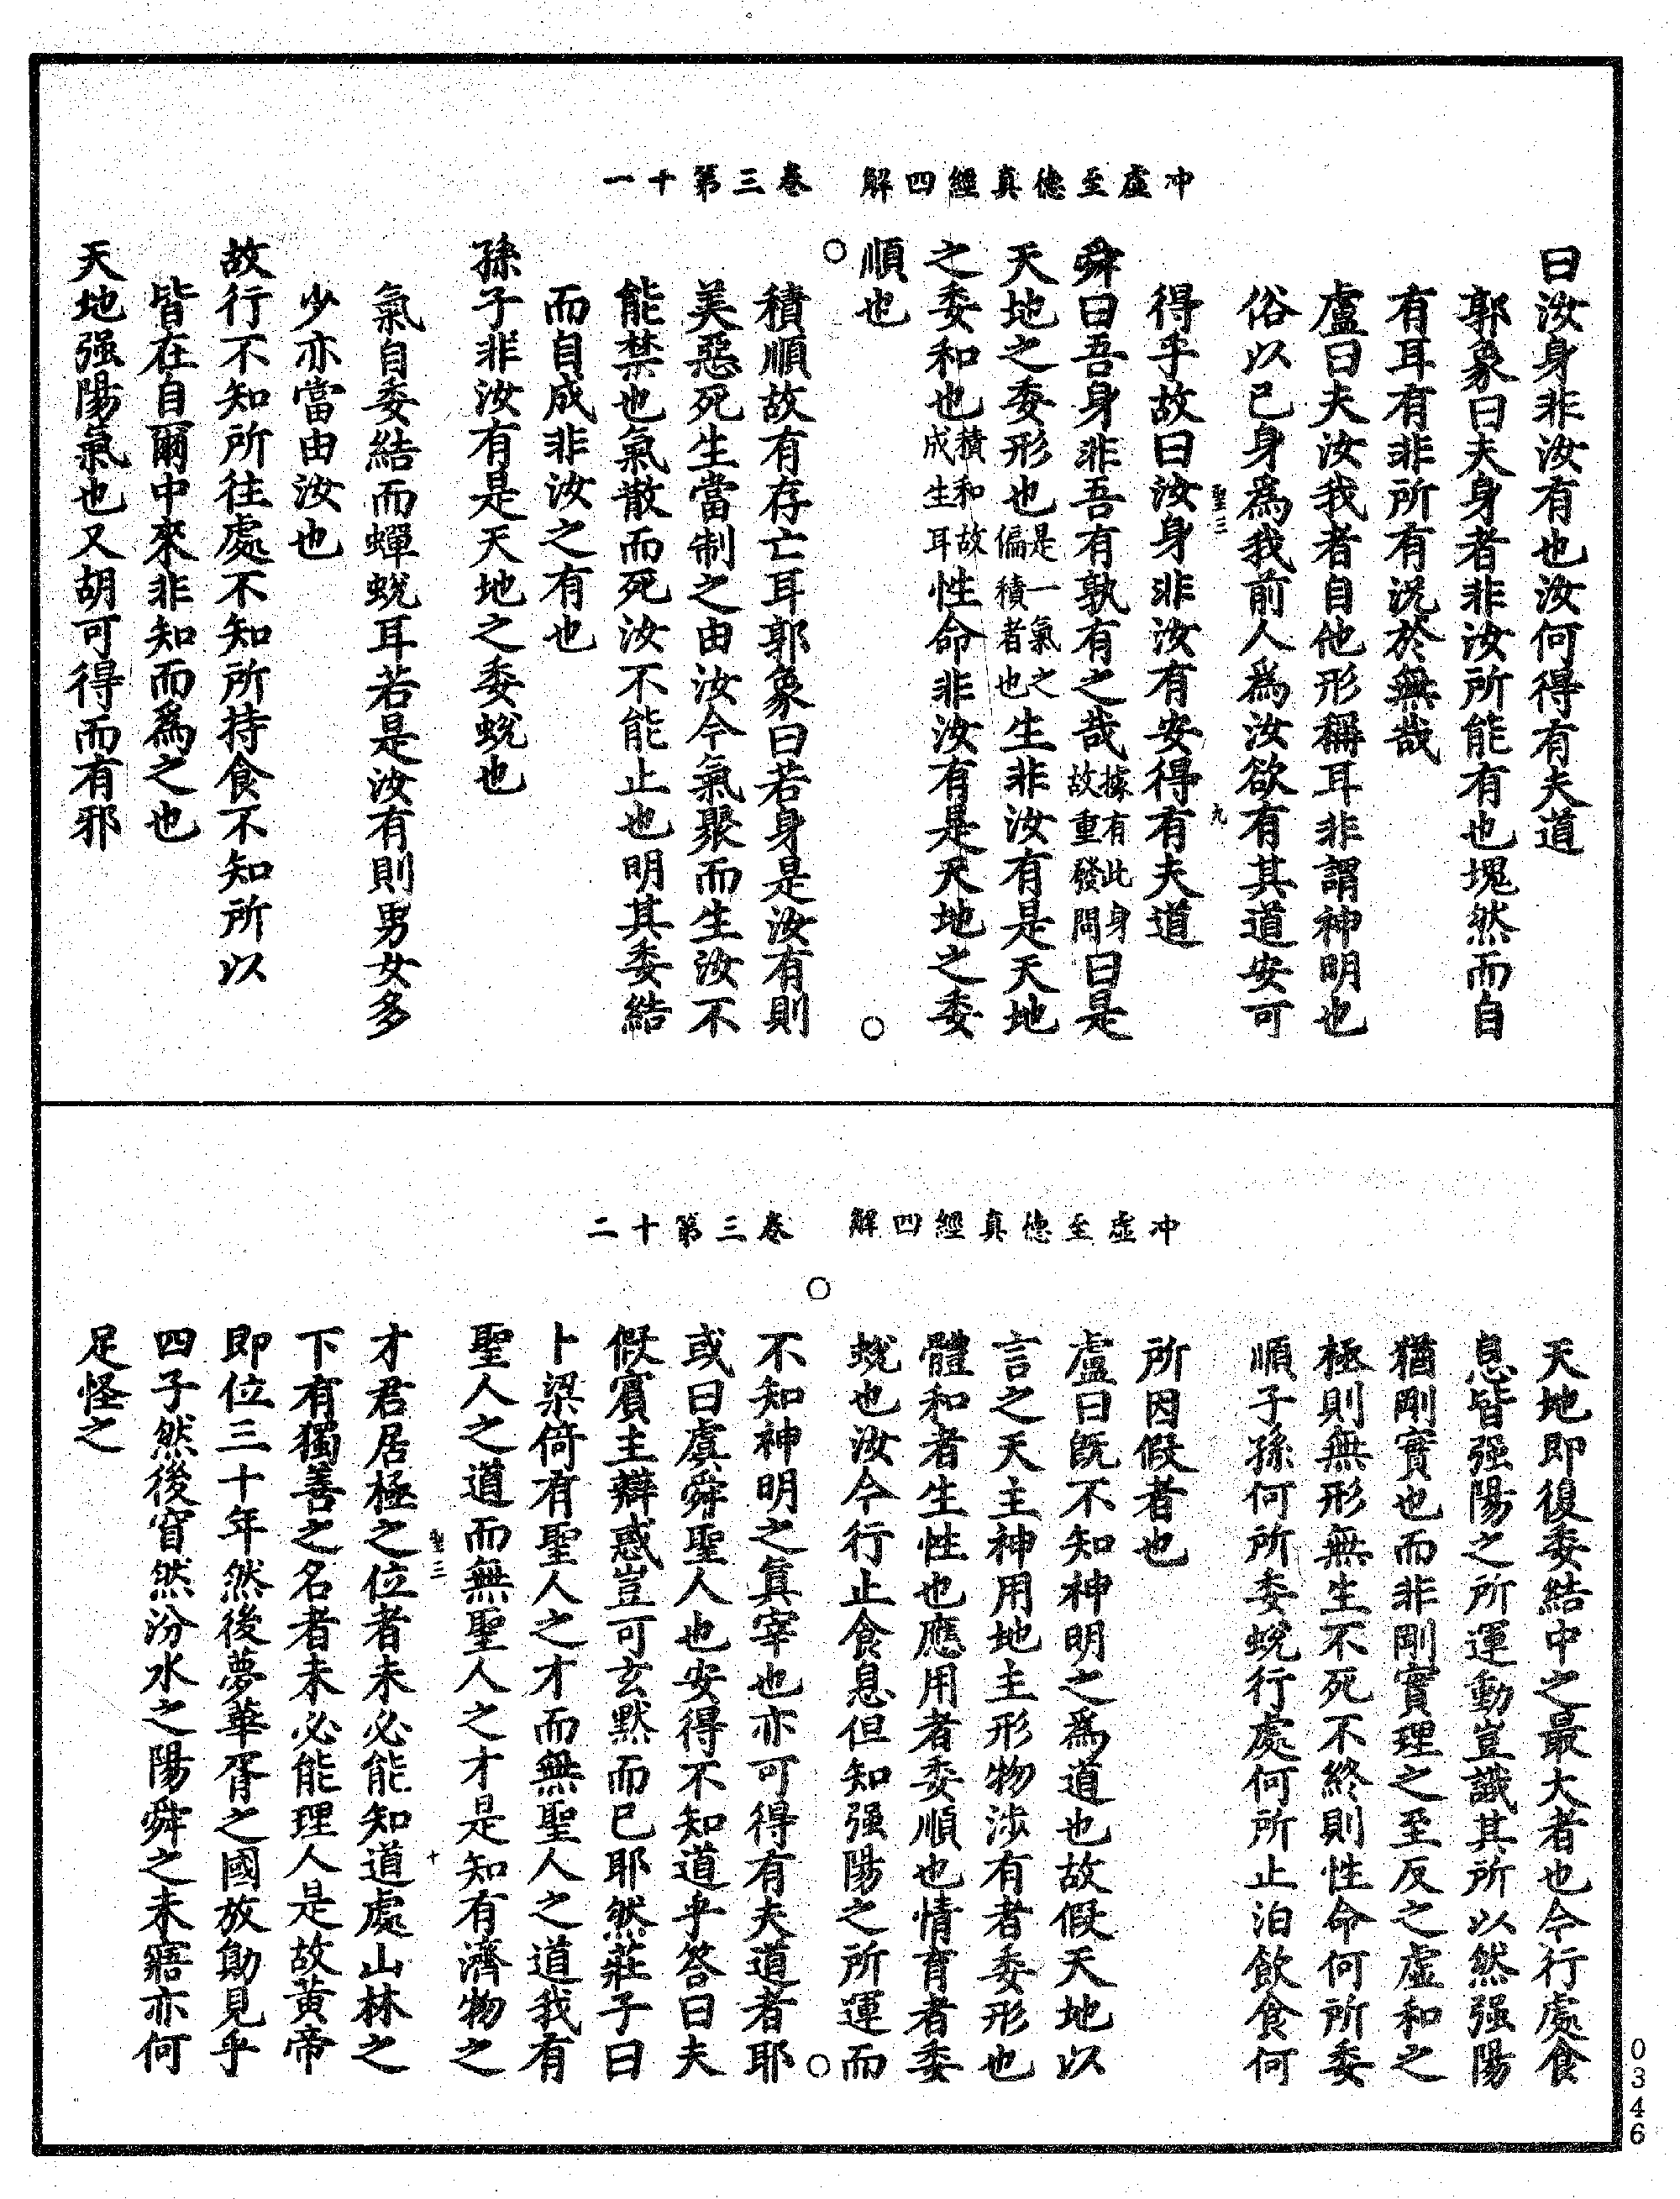 冲虛至德真經四解　卷三第十一
曰汝身非汝有也汝何得有夫道
郭象曰夫身者非汝所能有也塊然而自
有耳有非所有況於無哉
盧曰夫汝我者自他形稱耳非謂神明也
俗以己身爲我前人爲汝欲有其道安可
聖三　九
得乎故曰汝身非汝有安得有夫道
舜曰吾身非吾有孰有之哉據有此身故重發問曰是
天地之委形也是一氣之偏積者也生非汝有是天地
之委和也積和故成生耳性命非汝有是天地之委
順也
○　○
積順故有存亡耳郭象曰若身是汝有則
美惡死生當制之由汝今氣聚而生汝不
能禁也氣散而死汝不能止也明其委結
而自成非汝之有也
孫子非汝有是天地之委蛻也
氣自委結而蟬蛻耳若是汝有則男女多
少亦當由汝也
故行不知所往處不知所持食不知所以
皆在自爾中來非知而爲之也
天地强陽氣也又胡可得而有邪
冲虛至德真經四解　卷三第十二
天地即復委結中之最大者也今行處食
息皆强陽之所運動豈識其所以然强陽
猶剛實也而非剛實理之至反之虛和之
極則無形無生不死不終則性命何所委
順子孫何所委蛻行處何所止泊飲食何
所因假者也
盧曰既不知神明之爲道也故假天地以
言之天主神用地主形物涉有者委形也
體和者生性也應用者委順也情育者委
蛻也汝今行止食息但知强陽之所運而
○　○
不知神明之真宰也亦可得有夫道者耶
或曰虞舜聖人也安得不知道乎答曰夫
假賓主辯惑豈可玄默而已耶然莊子曰
卜梁倚有聖人之才而無聖人之道我有
聖人之道而無聖人之才是知有濟物之
聖三　十
才君居極之位者未必能知道處山林之
下有獨善之名者未必能理人是故黃帝
即位三十年然後夢華胥之國放勛見乎
四子然後窅然汾水之陽舜之未寤亦何
足怪之
0346